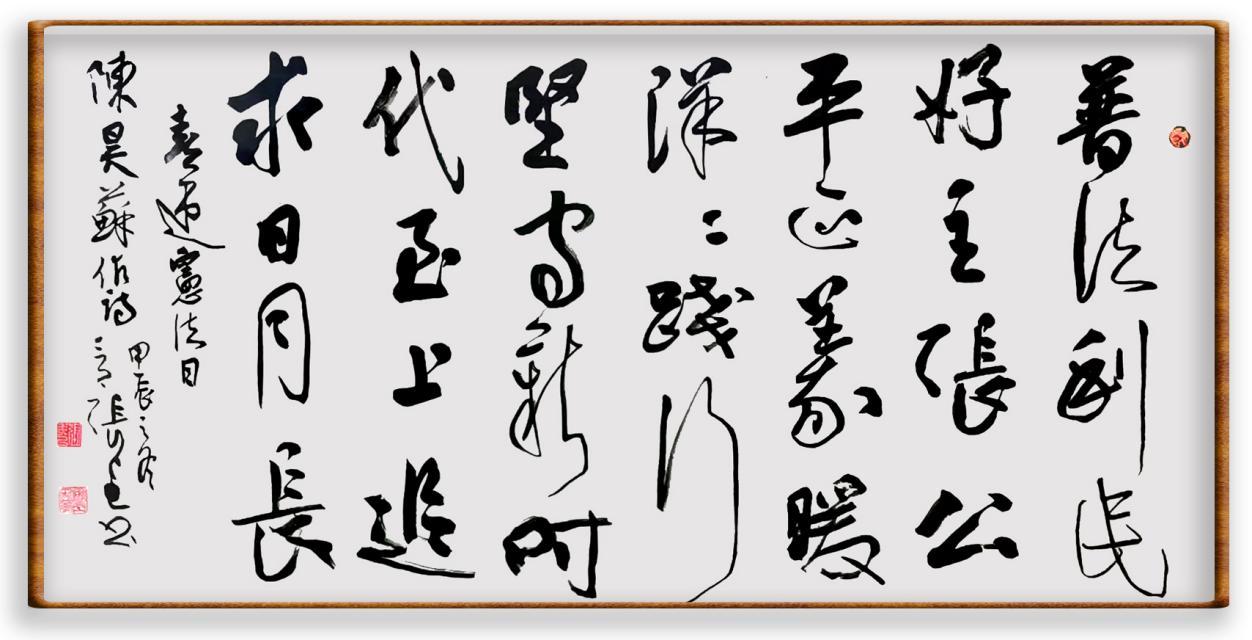 普法利民
好主張公
平正義暖
洋々踐行
堅守新时
代至上追
求日月長
喜迎憲法日
陳昊蘇作詩
甲辰之冬